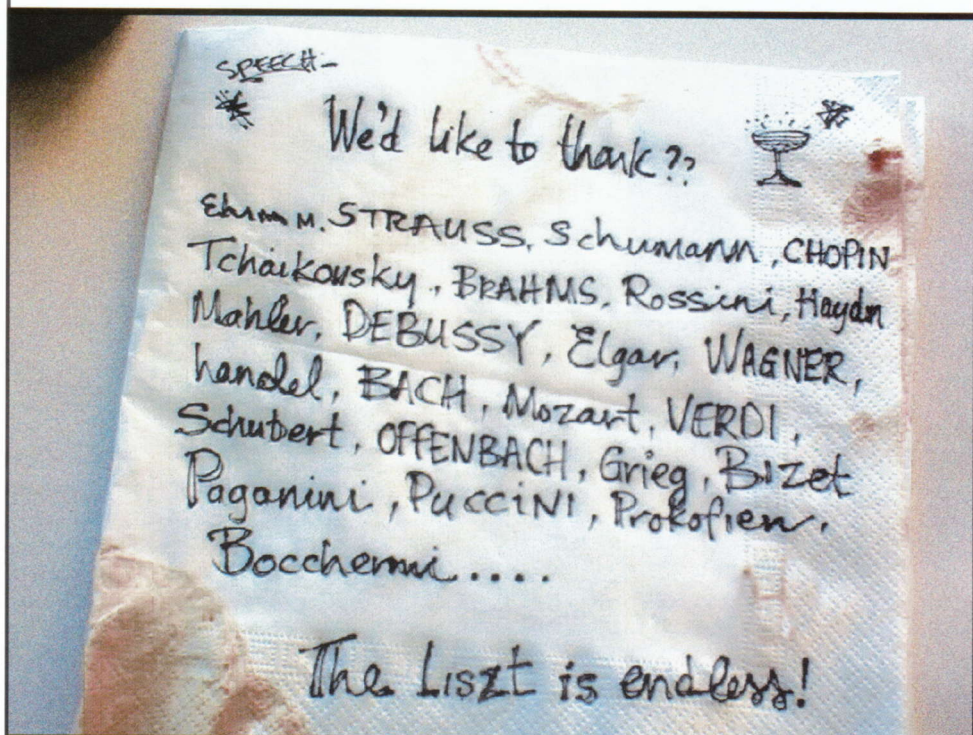 SPEECH-
We'd like to thank??
Ehmm M. STRAUSS, Schumann, CHOPIN
Tchaikovsky, BRAHMS, Rossini, Haydn
Mahler, DEBUSSY, Elgar, WAGNER,
handel, BACH, Mozart, VERDI,
Schubert, OFFENBACH, Grieg, BIZet
Paganini, PUCCiNI, Prokofiev,
Boccherini....
The Liszt is endless!